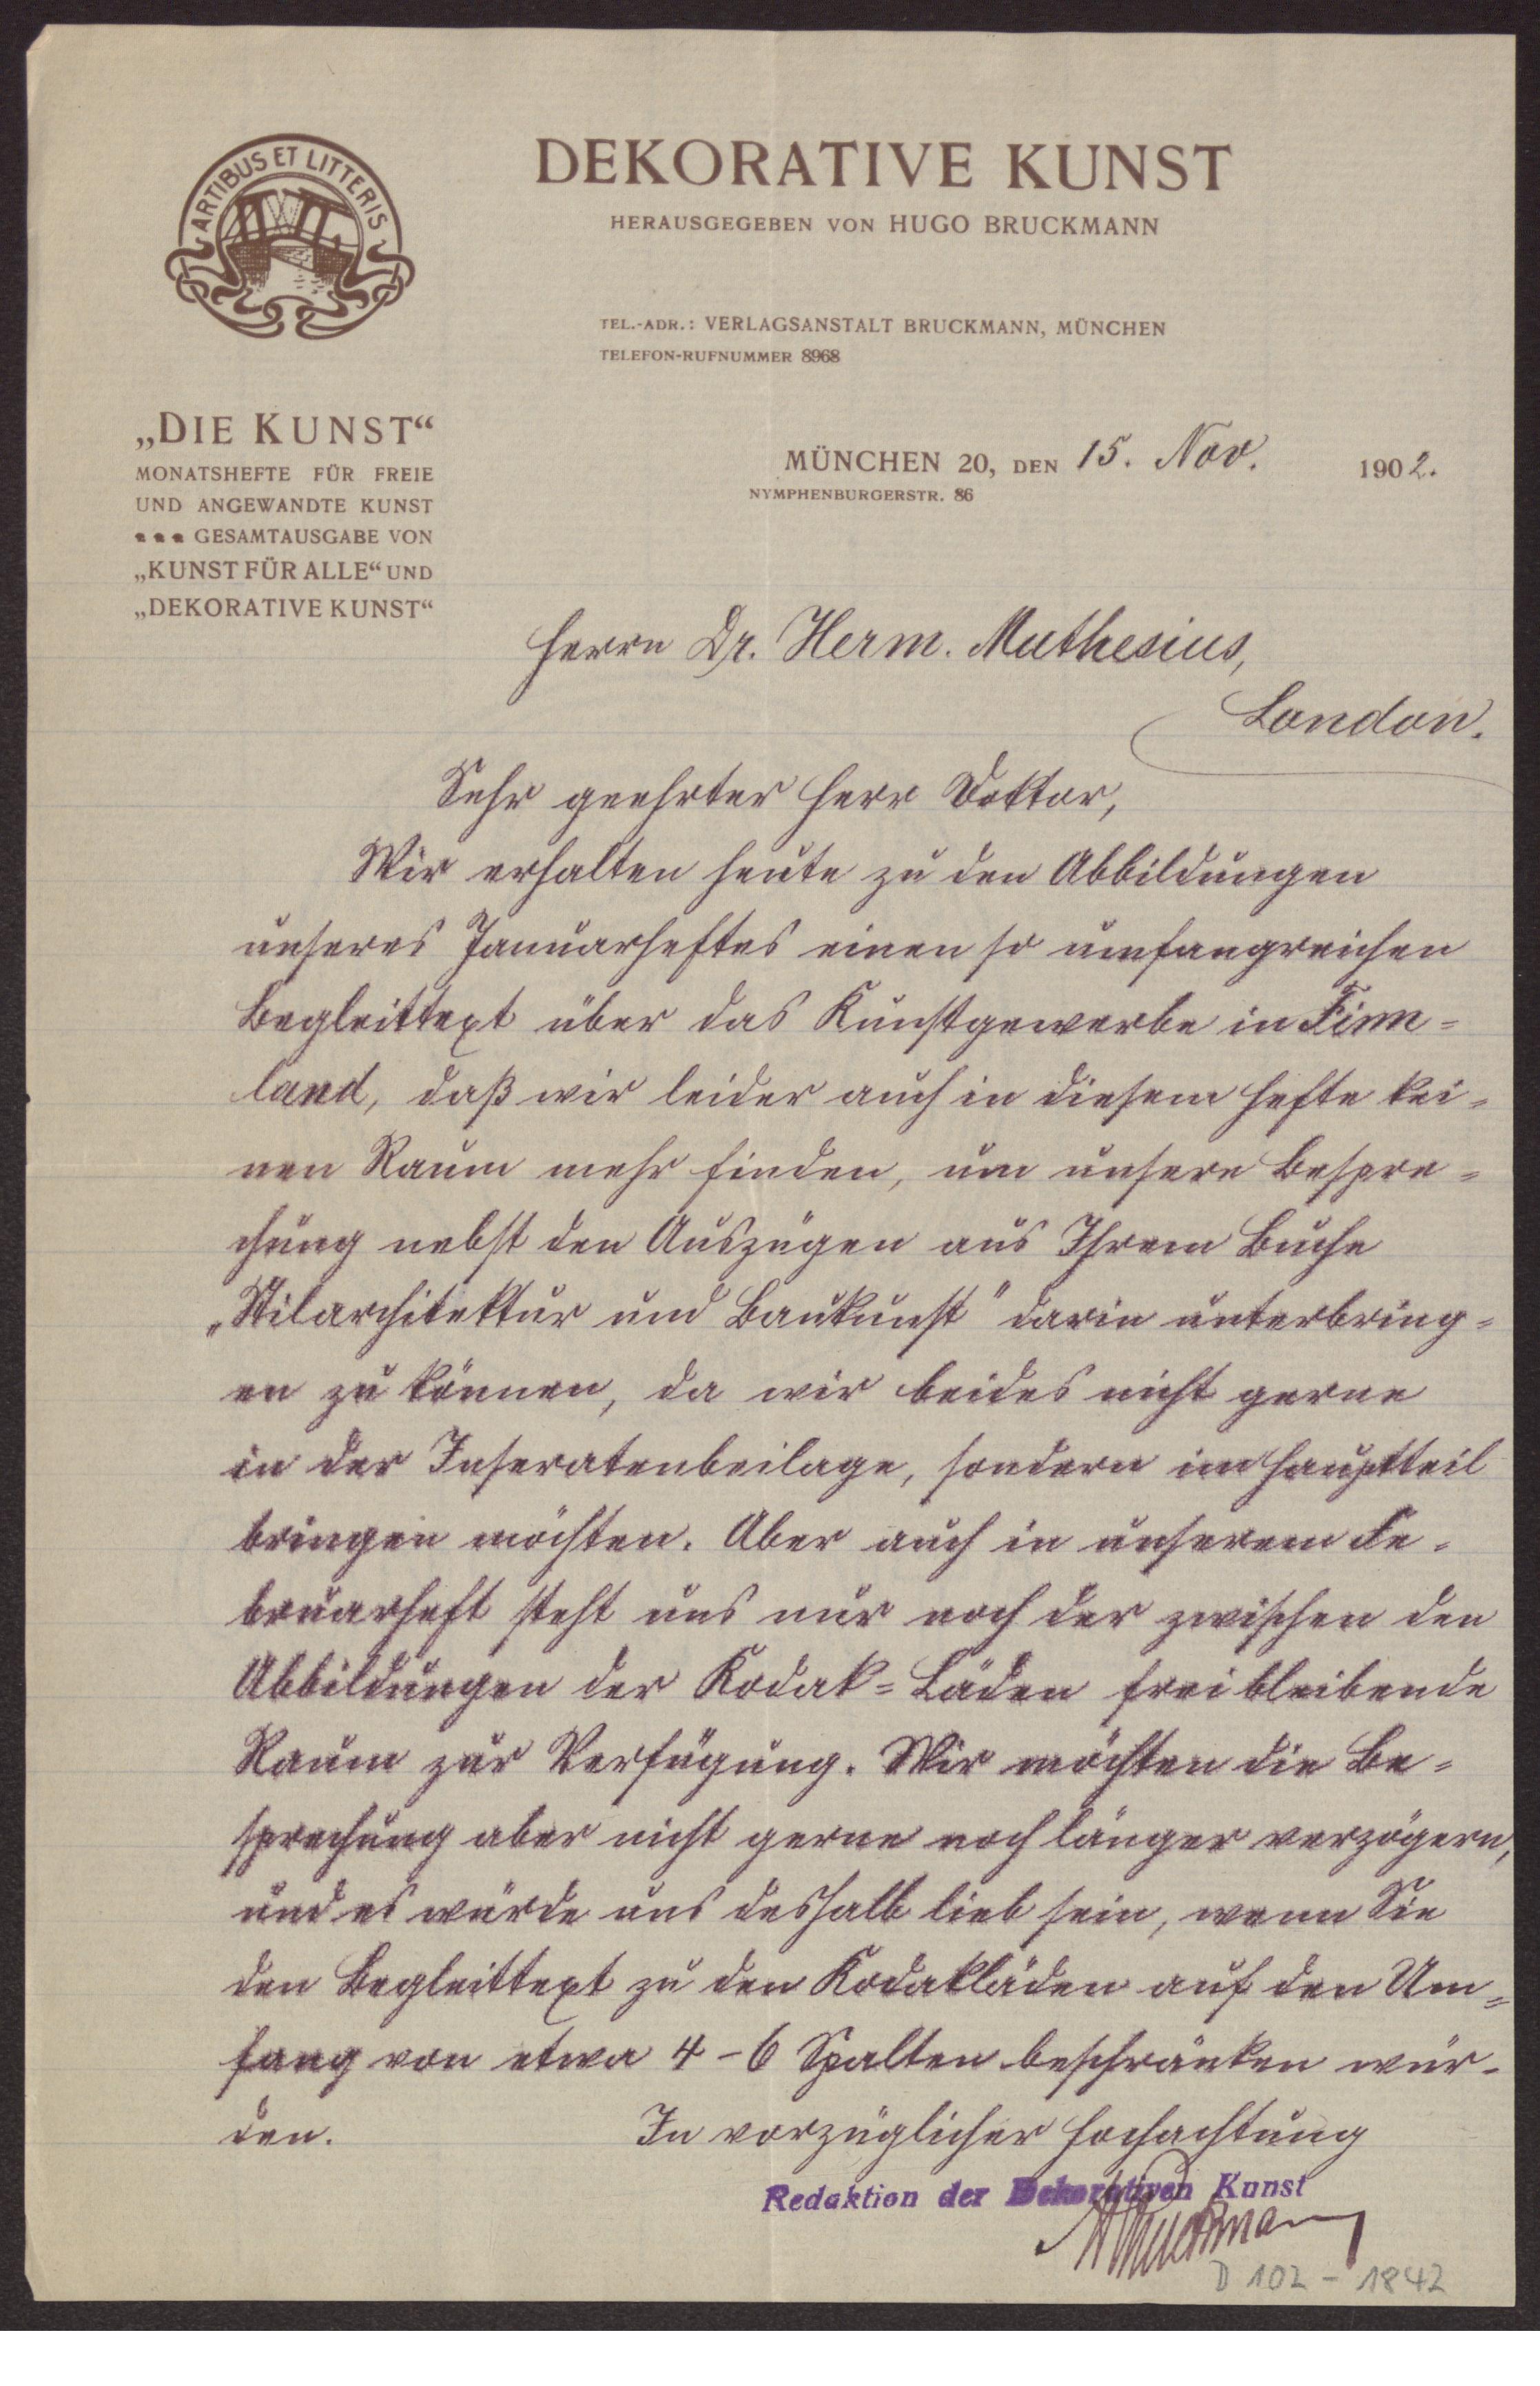 ARTIBUS ET LITTERIS
DEKORATIVE KUNST
HERAUSGEGEBEN VON HUGO BRUCKMANN
TEL.-ADR.: VERLAGSANSTALT BRUCKMANN, MÜNCHEN
TELEFON-RUFNUMMER 8968
„DIE KUNST“
MONATSHEFTE FÜR FREIE
UND ANGEWANDTE KUNST
GESAMTAUSGABE VON
„KUNST FÜR ALLE“ UND
„DEKORATIVE KUNST“
MÜNCHEN 20, DEN 15. Nov. 1902.
NYMPHENBURGERSTR. 86
Herrn Dr. Herm. Muthesius,
London.
Sehr geehrter Herr Doktor,
Wir erhalten heute zu den Abbildungen
unseres Januarheftes einen so umfangreichen
Begleittext über das Kunstgewerbe in Finn=
land, daß wir leider auch in diesem Hefte kei=
nen Raum mehr finden, um unsere Bespre=
chung nebst den Auszügen aus Ihrem Buche
„Stilarchitektur und Baukunst" darin unterbring=
en zu können, da wir beides nicht gerne
in der Inseratenbeilage, sondern im Hauptteil
bringen möchten. Aber auch in unserem Fe=
bruarheft steht uns nur noch der zwischen den
Abbildungen der Kodak=Läden frei bleibende
Raum zur Verfügung. Wir möchten die Be=
sprechung aber nicht gerne noch länger verzögern,
und es würde uns deshalb lieb sein, wenn Sie
den Begleittext zu den Kodakläden auf den Um=
fang von etwa 4-6 Spalten beschränken wür=
den.
In vorzüglicher Hochachtung
Redaktion der Dekorativen Kunst
HBruckmann
D 102 - 1842